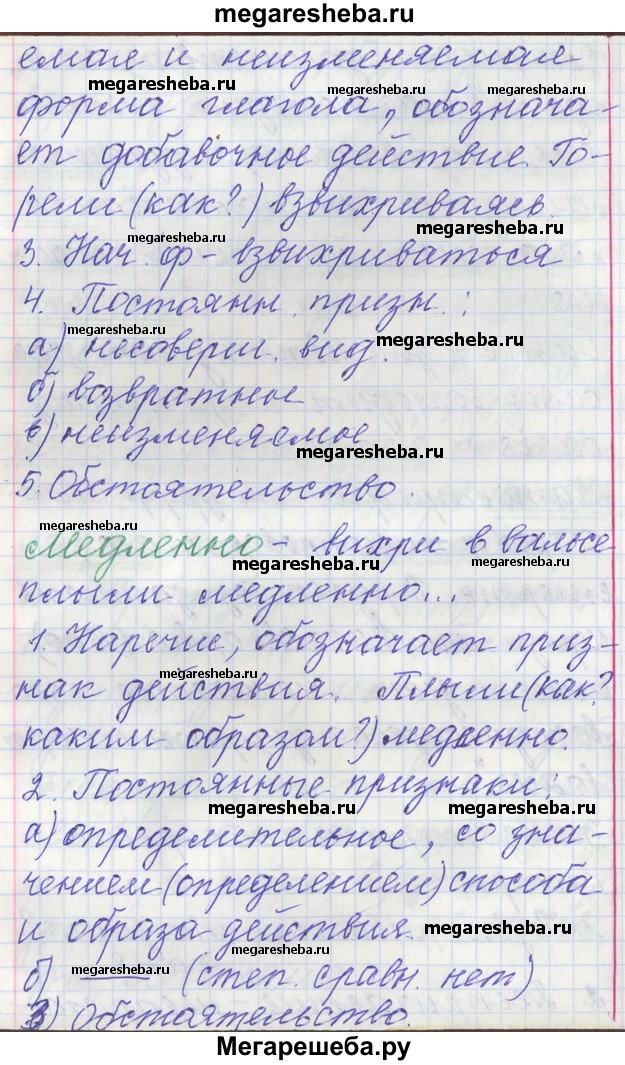 megaresheba.ru
емая и неизменяемая
megaresheba.ru
megaresheba.ru
форма глагола, обознача-
ет добавочное действие. Го-
рели (как?) взвихриваясь.
megaresheba.ru
megaresheba.ru
3. Нач. ф - взвихриваться
4. Постоянн. призн.:
megaresheba.ru
megaresheba.ru
а) несоверш. вид.
б) возвратное
в) неизменяемое
megaresheba.ru
5. Обстоятельство.
megaresheba.ru
Медленно - вихри в вальсе
megaresheba.ru
megaresheba.ru
плыли медленно...
1. Наречие, обозначает приз-
megaresheba.ru
нак действия. Плыли (как?
каким образом?) медленно.
2. Постоянные признаки:
megaresheba.ru
megaresheba.ru
а) определительное, со зна-
чением (определением) способа
и образа действия.
megaresheba.ru
б) — (степ. сравн. нет)
megaresheba.ru
3) Обстоятельство.
Мегарешеба.ру